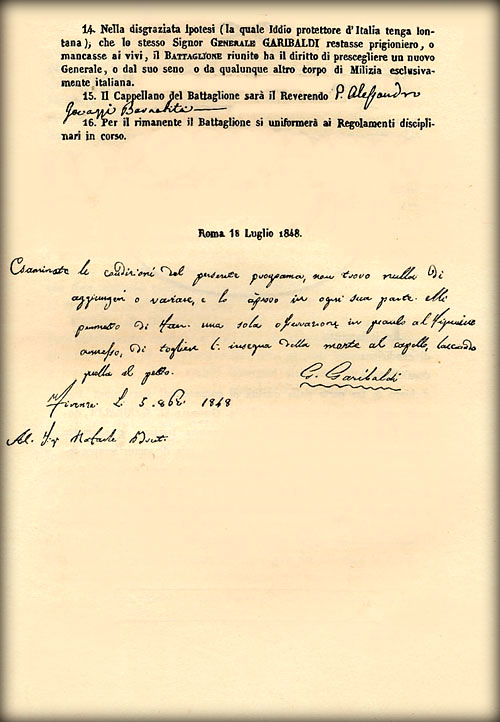 14. Nella disgraziata Ipotesi (la quale Iddio protettore d'Italia tenga lon-
tana); che lo stesso Signor GENERALE GARIBALDI restasse prigioniero, o
mancasse ai vivi, il BATTAGLIONE riunito ha il diritto di prescegliere un nuovo
Generale, o dal suo seno o da qualunque altro corpo di Milizia esclusiva-
mente italiana.
15. Il Cappellano del Battaglione sarà il Reverendo P. Alessandro
Gavazzi Barnabita
16. Per il rimanente il Battaglione si uniformerà ai Regolamenti discipli-
nari in corso.
Roma 18 Luglio 1848.
Esaminate le condizioni del presente programa, non trovo nulla di
aggiungere o variare, e lo in ogni sua parte. Mi
permetto di una sola osservazione in quanto al
annesso, di togliere l'insegna della morte al capello, lasciando
quella al petto.
G. Garibaldi
Firenze Li 5 1848
Al Sig